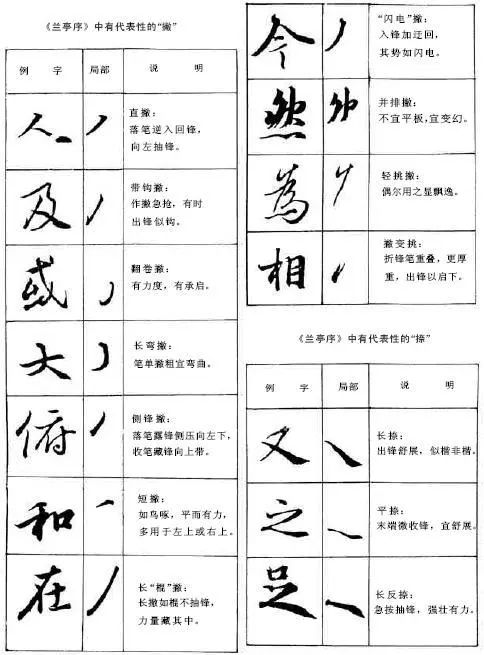 《兰亭序》中有代表性的“撇”
例 字 局部 说 明
人
直撇：
落笔逆入回锋，
向左抽锋。
及
带钩撇：
作撇急抢，有时
出锋似钩。
或
翻卷撇：
有力度，有承启。
大
长弯撇：
笔单撇粗宜弯曲。
俯
侧锋撇：
落笔露锋侧压向左下，
收笔藏锋向上带。
和
短撇：
如鸟啄，平而有力，
多用于左上或右上。
在
长“棍”撇：
长撇如棍不抽锋，
力量藏其中。
今
“闪电”撇：
入锋加迂回，
其势如闪电。
然
并排撇：
不宜平板，宜变幻。
為
轻挑撇：
偶尔用之显飘逸。
相
撇变挑：
折锋笔重叠，更厚
重，出锋以启下。
《兰亭序》中有代表性的“捺”
例 字 局部 说 明
又
长捺：
出锋舒展，似楷非楷。
之
平捺：
末端微收锋，宜舒展。
足
长反捺：
急按抽锋，强壮有力。